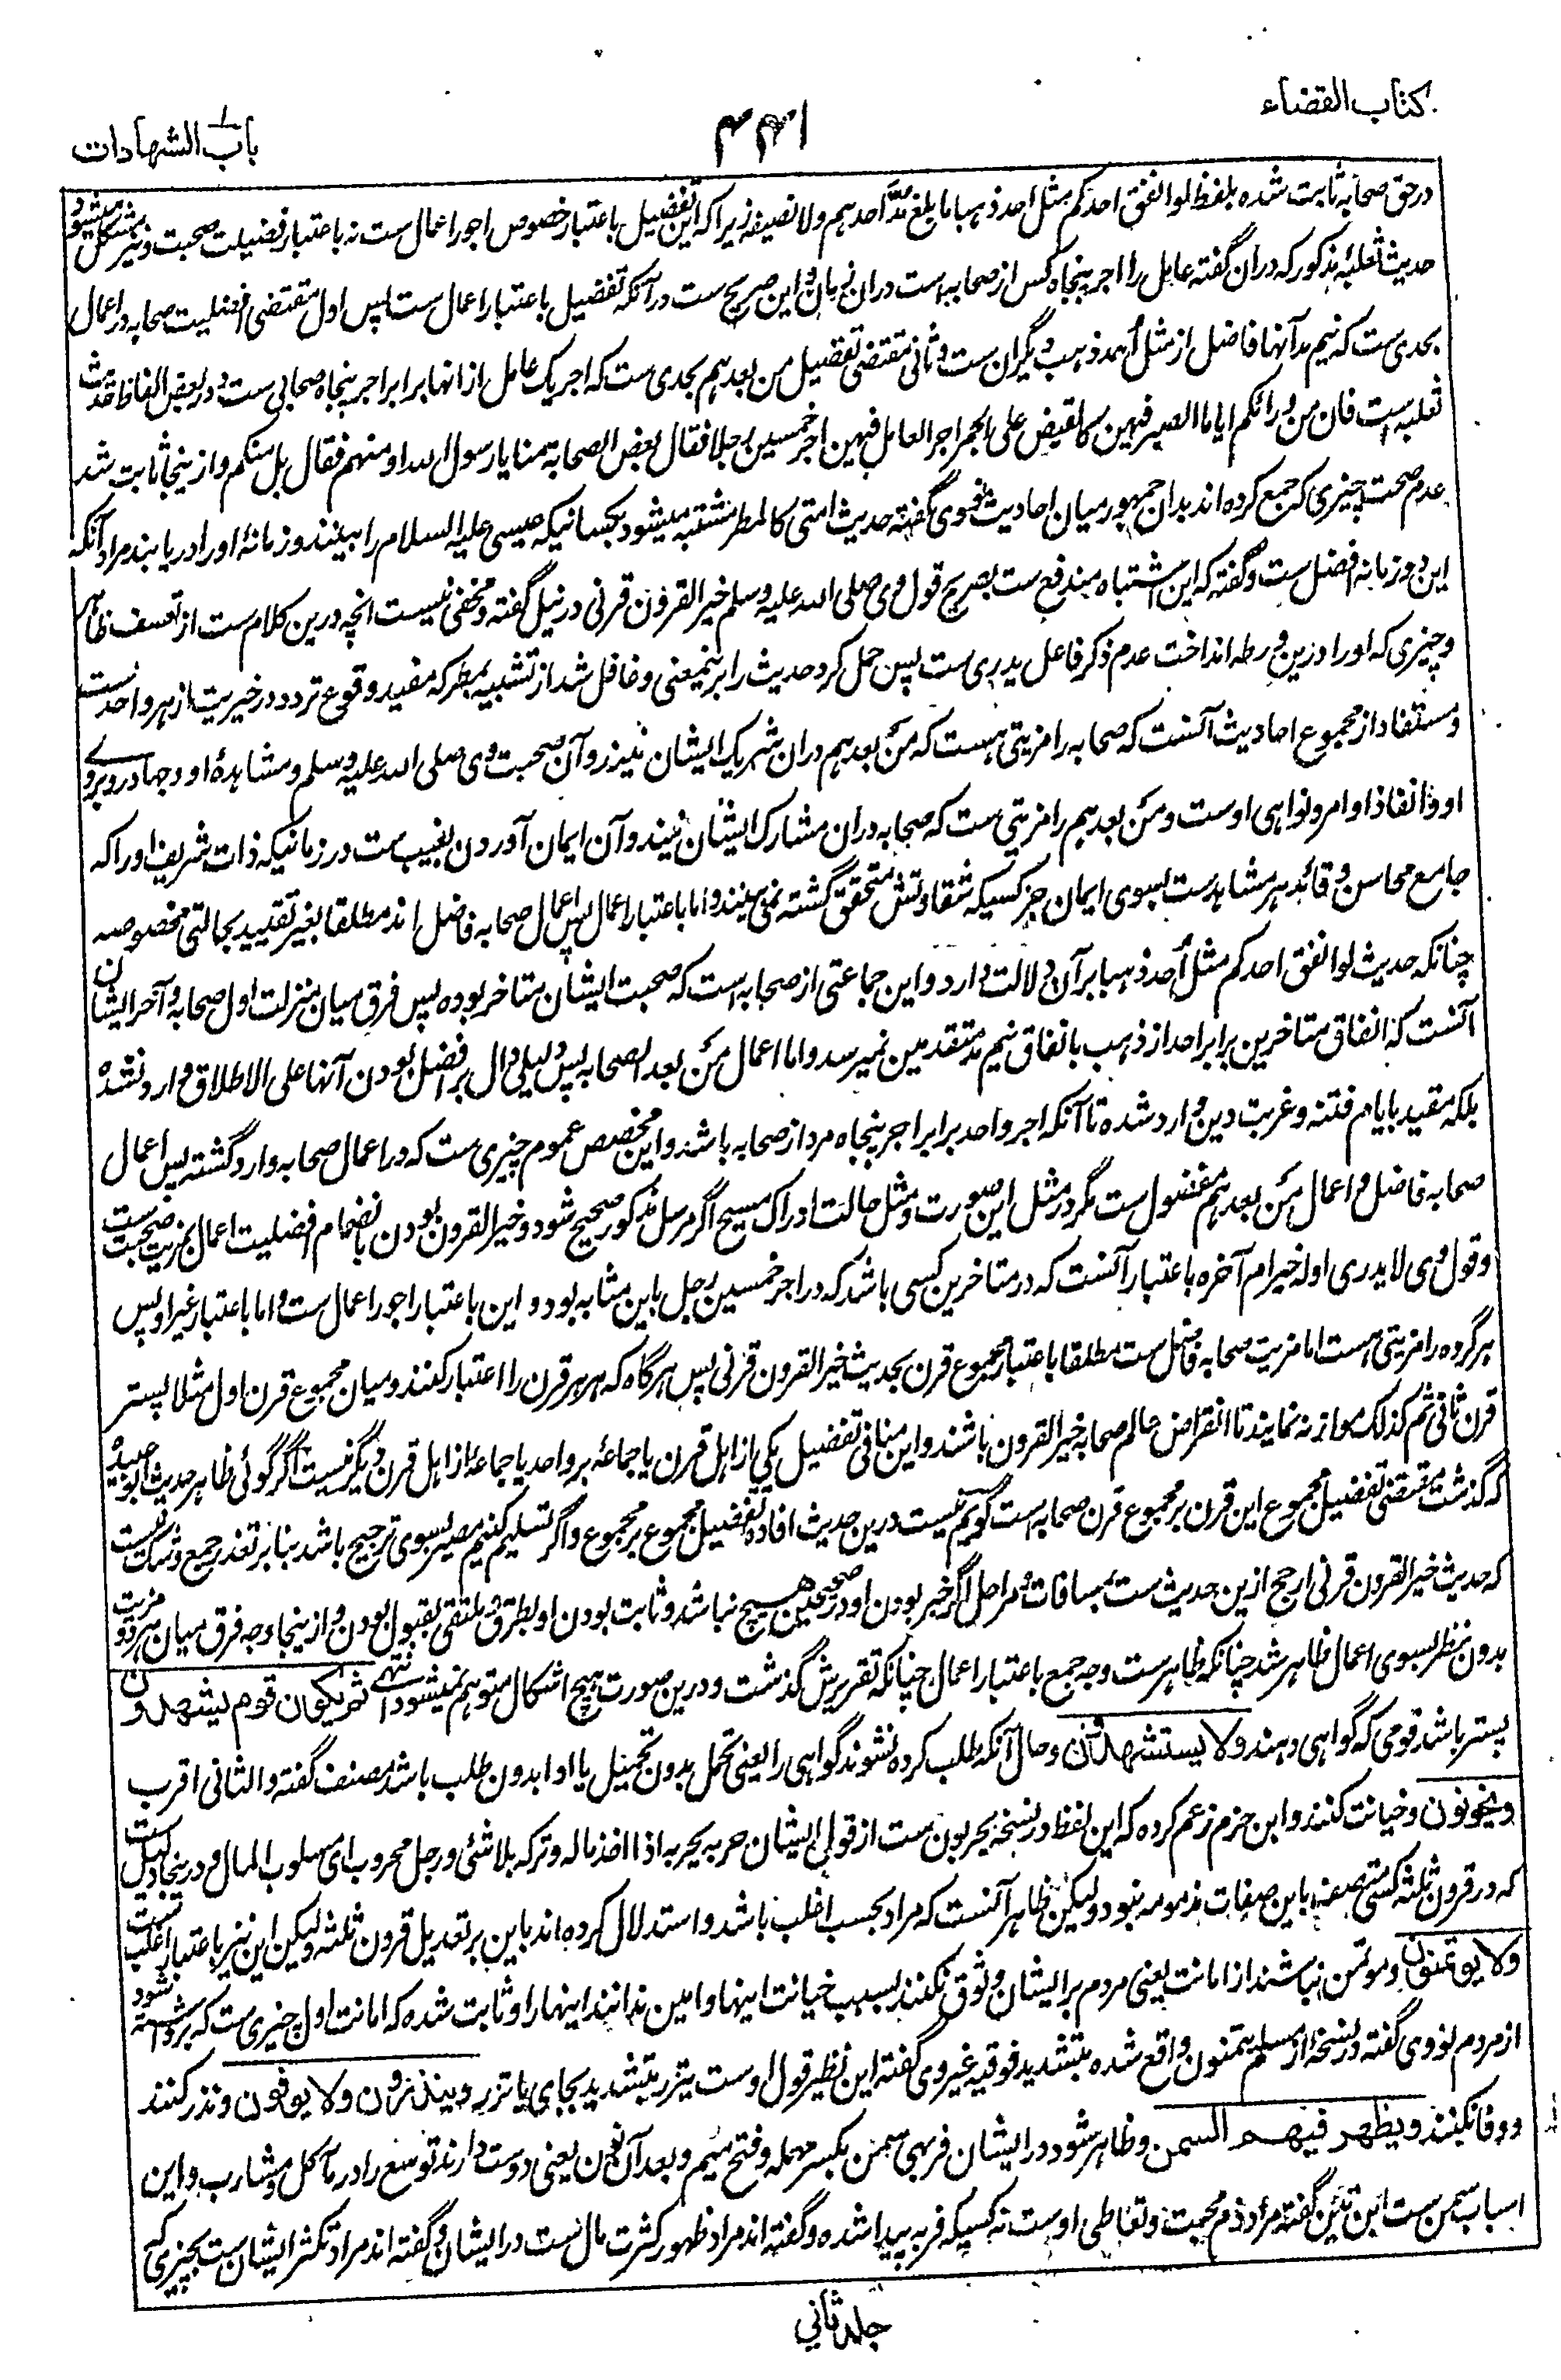 کتاب القضاء
۴۴۱
باب الشهادات
درحق صحابه ثابت شده بلفظ لو انفق احدکم مثل احد ذهبا ما بلغ مدّ احدهم ولا نصیفه زیرا که این تفضیل باعتبار خصوص اجور اعمال ست نه باعتبار فضیلت صحبت و نیز مشکل میشود
حدیث ثعلبه مذکور که دران گفته عامل را اجر پنجاه کس از صحابه است دران زمان و این صریح ست درآنکه تفضیل باعتبار اعمال ست پس اول مقتضی افضلیت صحابه در اعمال
بحدی ست که نیم مد آنها فاضل از مثل احد ذهب دیگران ست و ثانی مقتضی تفضیل من بعدهم بحدی ست که اجر یک عامل ازانها برابر اجر پنجاه صحابی ست و در بعض الفاظ حدیث
ثعلبه است فان من ورائکم ایاما الصبر فیهن کالقبض علی الجمر اجر العامل فیهن اجر خمسین رجلا فقال بعض الصحابة منا یا رسول الله او منهم فقال بل منکم و ازینجا ثابت شد
عدم صحت چیزی که جمع کرده اند بدان جمهور میان احادیث نووی گفته حدیث امتی کالمطر مشتبه میشود بکسانیکه عیسی علیه السلام را بینند و زمانهٔ او را دریابند مراد آنکه
این دو زمانه افضل ست و گفته که این اشتباه مندفع ست بصریح قول وی صلی الله علیه وسلم خیر القرون قرنی در نیل گفته و مخفی نیست انچه درین کلام ست از تعسف ظاهر
و چیزی که او را درین ورطه انداخت عدم ذکر فاعل یدری ست پس حمل کرد حدیث را برینمعنی و غافل شد از تشبیه بمطر که مفید وقوع تردد در خیریت از هر واحد ست
و مستفاد از مجموع احادیث آنست که صحابه را مزیتی هست که من بعدهم دران شریک ایشان نیند و آن صحبت وی صلی الله علیه وسلم و مشاهدهٔ او و جهاد روبروے
او و انفاذ اوامر و نواهی اوست و من بعدهم را مزیتی ست که صحابه دران مشارک ایشان نیند و آن ایمان آوردن بغیب ست در زمانیکه ذات شریف او را که
جامع محاسن و قائد هر مشاهد ست بسوی ایمان جز کسیکه شقاوتش متحقق گشته نمی بینند و اما باعتبار اعمال پس اعمال صحابه فاضل اند مطلقا بغیر تقیید بحالتی مخصوصه
چنانکه حدیث لو انفق احدکم مثل احد ذهبا برآن دلالت دارد و این جماعتی از صحابه است که صحبت ایشان متاخر بوده پس فرق میان منزلت اول صحابه و آخر ایشان
آنست که انفاق متاخرین برابر احد از ذهب بانفاق نیم مد متقدمین نمیرسد و اما اعمال من بعد الصحابه پس دلیلی دال بر افضل بودن آنها علی الاطلاق وارد نشده
بلکه مقید بایام فتنه و غربت دین وارد شده تا آنکه اجر واحد برابر اجر پنجاه مرد از صحابه باشد و این مخصص عموم چیزی ست که در اعمال صحابه وارد گشته پس اعمال
صحابه فاضل و اعمال من بعدهم مفضول ست مگر در مثل این صورت و مثل حالت ادراک مسیح اگر مرسل مذکور صحیح شود و خیر القرون بودن بانضمام افضلیت اعمال بمزیت صحبت ست
و قول وی لا یدری اوله خیر ام آخره باعتبار آنست که در متاخرین کسی باشد که در اجر خمسین رجل باین مثابه بود و این باعتبار اجور اعمال ست و اما باعتبار غیر او پس
هر گروه را مزیتی هست اما مزیت صحابه فاضل ست مطلقا باعتبار مجموع قرن بحدیث خیر القرون قرنی پس هرگاه که هر هر قرن را اعتبار کنند و میان مجموع قرن اول مثلا پستر
قرن ثانی ثم کذلک موازنه نمایند تا انقراض عالم صحابه خیر القرون باشند و این منافی تفضیل یکی از اهل قرن یا جماعهٔ بر واحد یا جماعه از اهل قرن دیگر نیست اگر گوئی ظاهر حدیث ابو عبیده
که گذشت مقتضی تفضیل مجموع این قرن بر مجموع قرن صحابه است گویم نیست درین حدیث افادهٔ تفضیل مجموع بر مجموع و اگر تسلیم کنیم مصیر بسوی ترجیح باشد بنا بر تعذر جمع و شک نیست
که حدیث خیر القرون قرنی ارجح ازین حدیث ست بمسافات و مراحل اگر خبر بودن او در صحیحین هیچ نباشد و ثابت بودن او بطرق و متلقی بقبول بودن و ازینجا وجه فرق میان هر دو مزیت
بدون نظر بسوی اعمال ظاهر شد چنانکه ظاهر ست وجه جمع باعتبار اعمال چنانکه تقریرش گذشت و درین صورت هیچ اشکال متوهم نمیشود انتهے ثم یکون قوم یشهدون
پستر باشد قومی که گواهی دهند ولا یستشهدون و حال آنکه طلب کرده نشوند گواهی را یعنی تحمل بدون تحمیل یا ادا بدون طلب باشد مصنف گفته و الثانی اقرب
ویخونون و خیانت کنند و ابن حزم زعم کرده که این لفظ در نسخه یحربون ست از قول ایشان حربه یحربه اذا اخذ ماله و ترکه بلا شئ و رجل محروب ای مسلوب المال و درینجا دلیل ست
که در قرون ثلثه کسی متصف باین صفات مذمومه نبود و لیکن ظاهر آنست که مراد بحسب اغلب باشد و استدلال کرده اند باین بر تعدیل قرون ثلثه و لیکن این نیز باعتبار اغلب ست
ولا یؤتمنون و موتمن نباشند از امانت یعنی مردم بر ایشان وثوق نکنند بسبب خیانت اینها و امین ندانند اینها را و ثابت شده که امانت اول چیزی ست که برداشته شود
از مردم نووی گفته در نسخه از مسلم یتمنون واقع شده بتشدید فوقیه غیر وی گفته این نظیر قول اوست یتزر بتشدید بجای یاتزر وینذرون ولا یوفون و نذر کنند
و وفا نکنند ویظهر فیهم السمن و ظاهر شود در ایشان فربهی سمن بکسر مهمله و فتح میم و بعد آن نون یعنی دوست دارند توسع را در مآکل و مشارب و این
اسباب سمن ست ابن تین گفته مراد ذم محبت و تعاطی اوست نه کسیکه فربه پیدا شده و گفته اند مراد ظهور کثرت مال ست در ایشان و گفته اند مراد تکثر ایشان ست بچیزی که
جلد ثاني